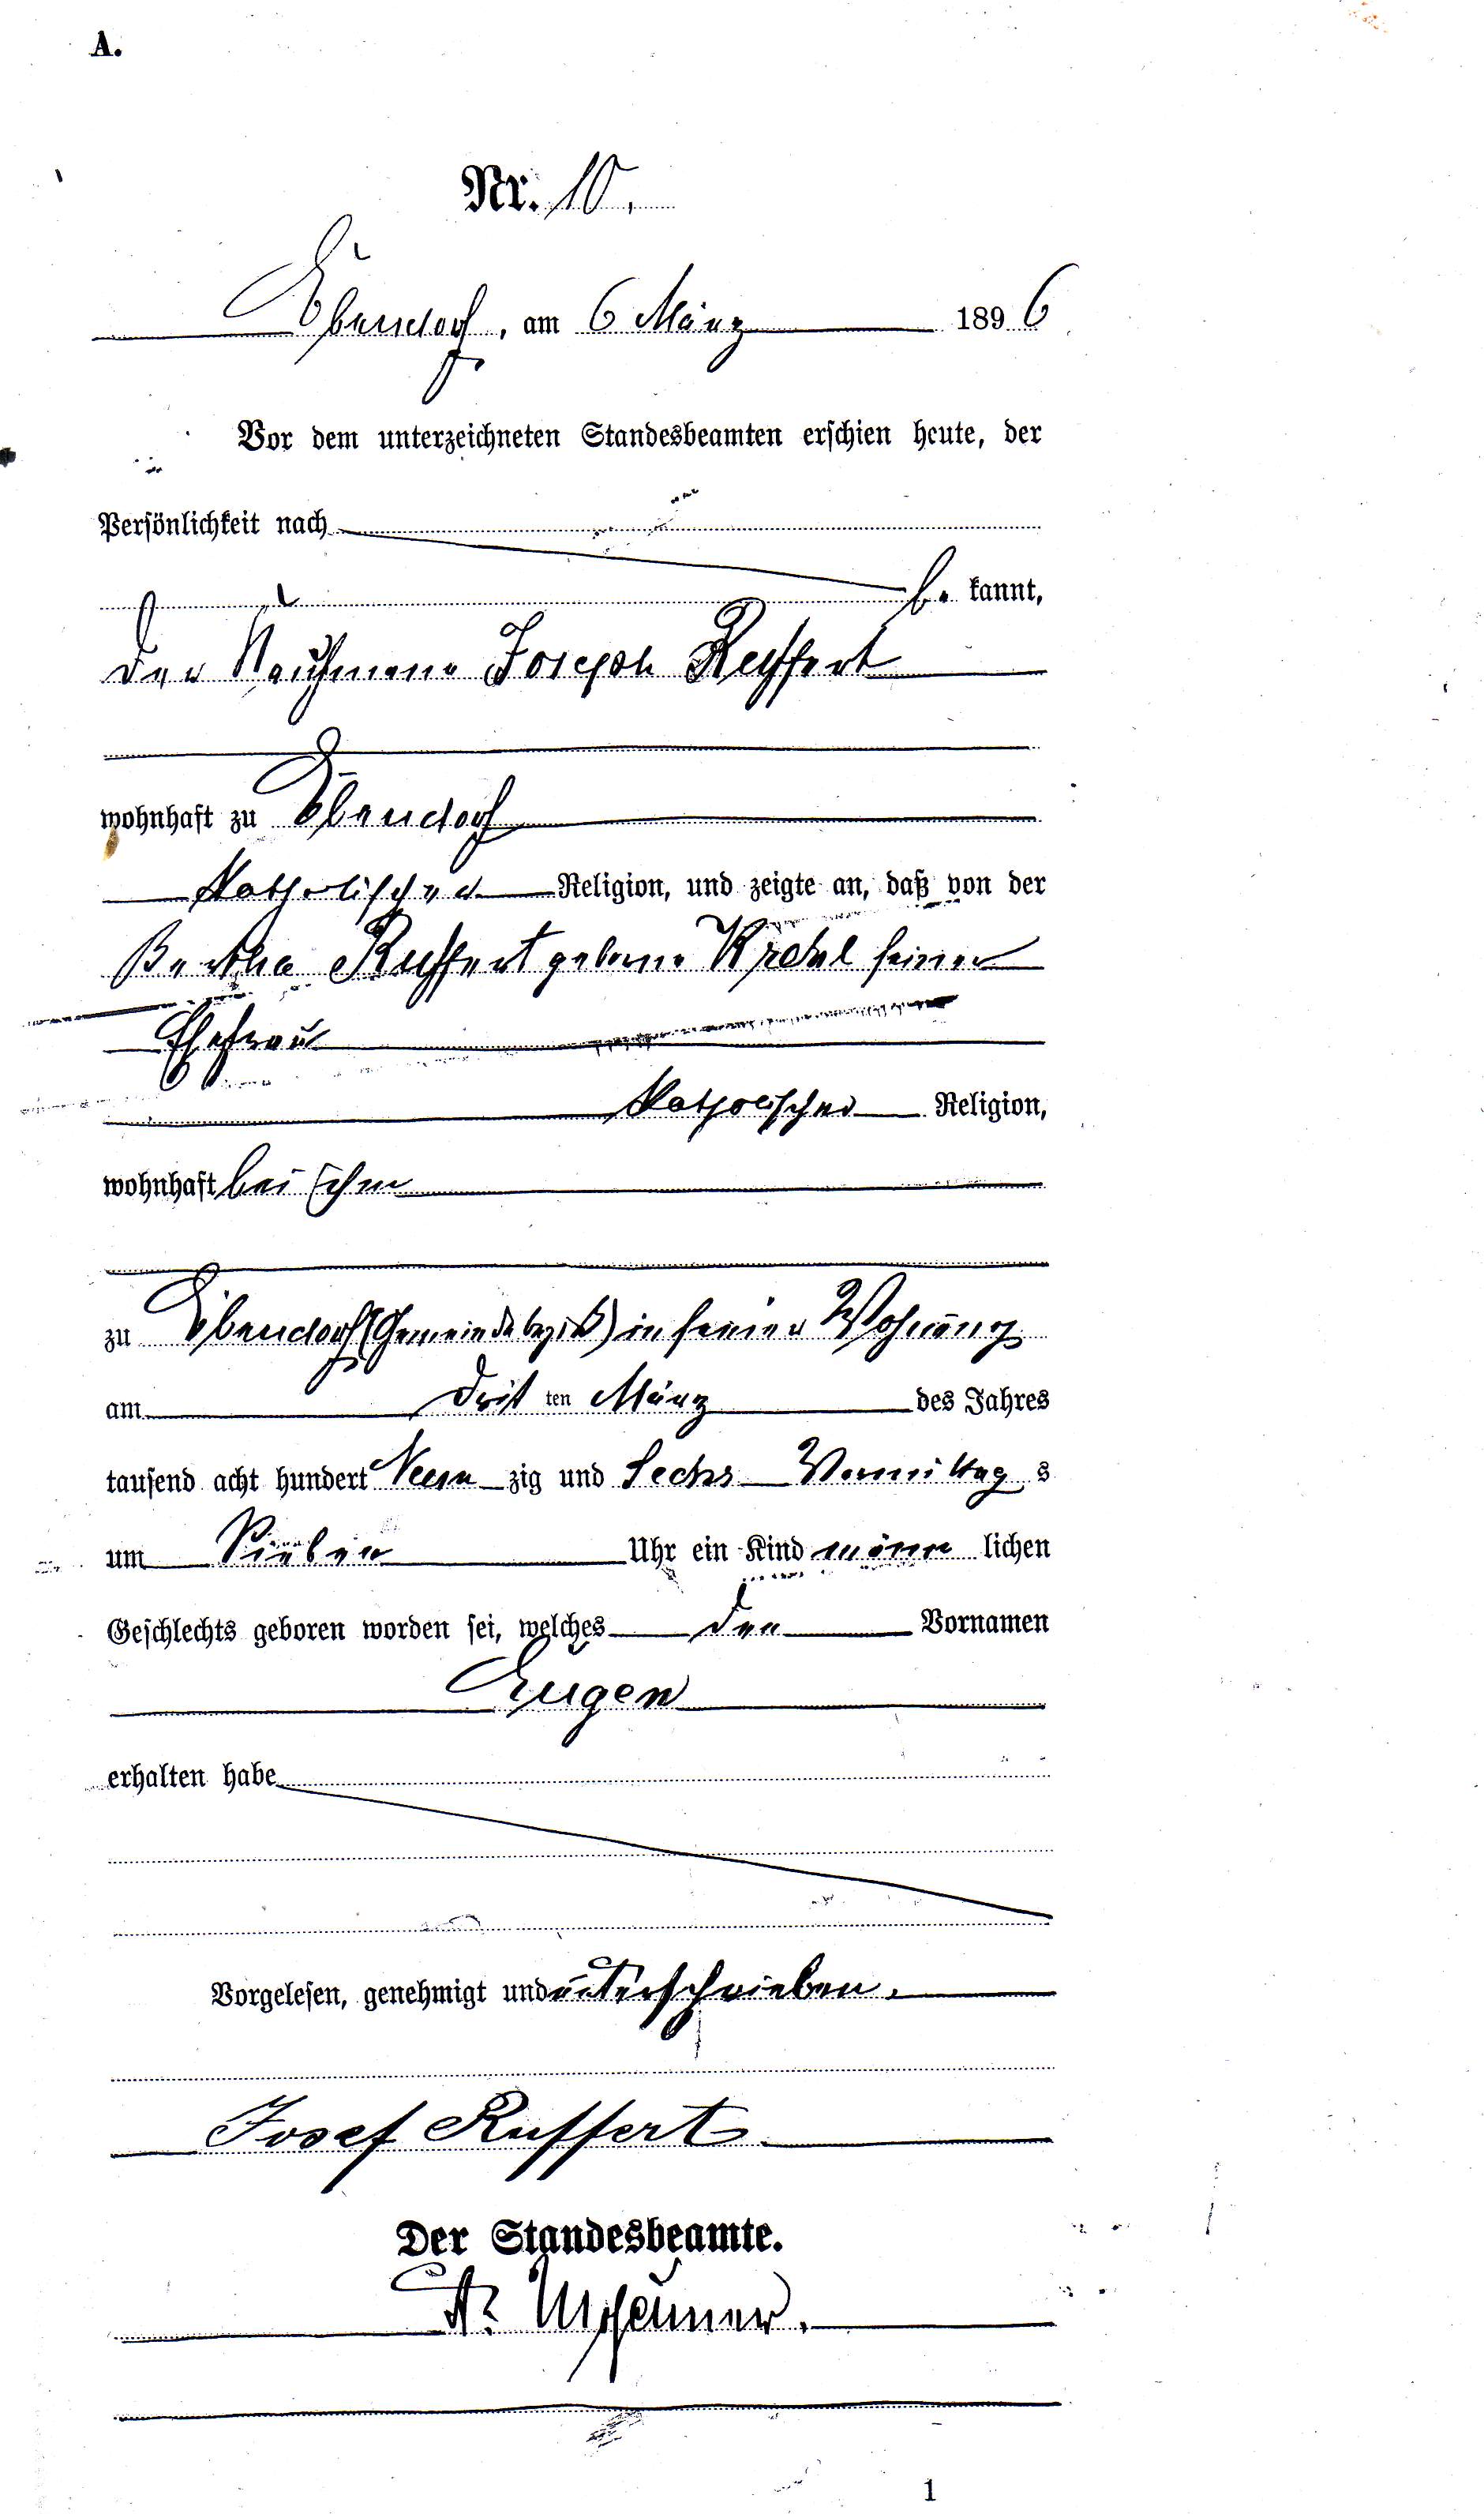 A.
Nr. 10.
Ebersdorf, am 6 März 1896
Vor dem unterzeichneten Standesbeamten erschien heute, der
Persönlichkeit nach
be kannt,
der Kaufmann Joseph Ruffert
wohnhaft zu Ebersdorf
katholischer Religion, und zeigte an, daß von der
Bertha Ruffert geborne seiner
Ehefrau
katholischer Religion,
wohnhaft bei ihm
zu Ebersdorf (Gemeindebezirk) in seiner Wohnung
am drit ten März des Jahres
tausend acht hundert Neun zig und Sechs Vormittag s
um Sieben Uhr ein Kind männ lichen
Geschlechts geboren worden sei, welches den Vornamen
Eugen
erhalten habe
Vorgelesen, genehmigt und unterschrieben.
Josef Ruffert
Der Standesbeamte.
1